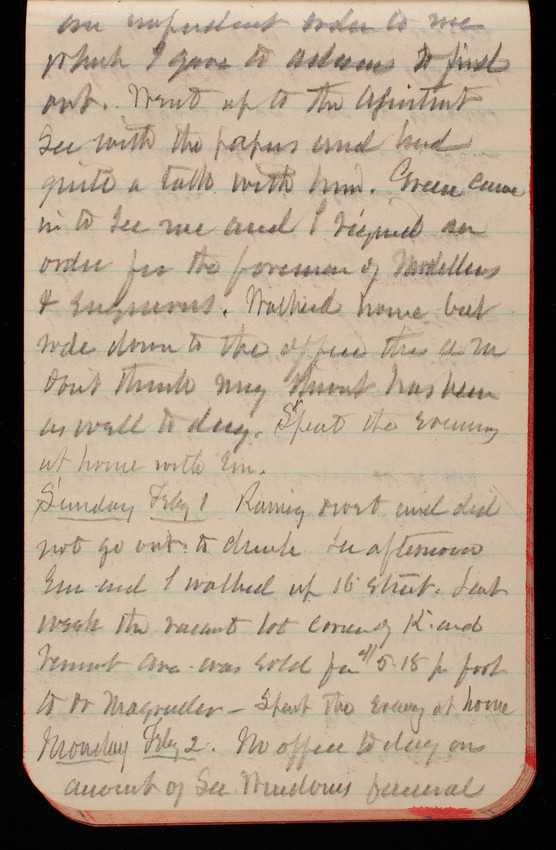 an impudent order to me
which I gave to Adams to find
out. Went up to the Assistant
Sec with the papers and had
quite a talk with him. Green came
in to see me and I signed an
order for the foreman of Modellers
& Engravers. Walked home but
rode down to the office this a m
Dont think my throat has been
as well to day. Spent the evening
at home with Em.
Sunday Feby 1 Rainy and did
not go out to church. In afternoon
Em and I walked up 16 Street. Last
week the vacant lot corner of K and
Vermont Ave was sold for $5.18 pr foot
to Dr Magruder - Spent the evening at home
Monday Feby 2. No office to day on
account of Sec Windoms funeral